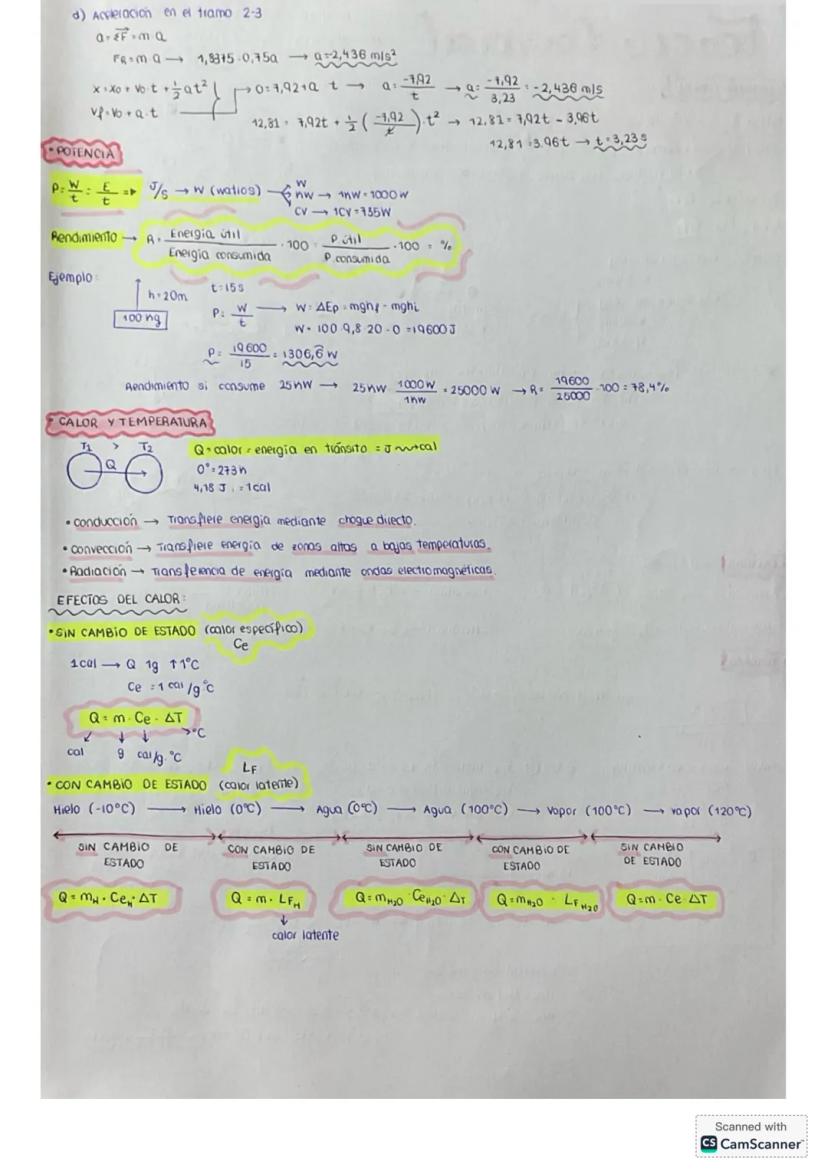 d) Aceleración en el tramo 2-3
a = ΣF = m a
FR = m a → 1,8375 = 0,75a → a = 2,436 m/s²
x = x0 + v0·t + ½ at²
0 = 7,92 + a t → a = -7,92/t → a = -7,92/3,23 = -2,436 m/s
Vf = V0 + a·t
12,81 = 7,92t + ½ (-7,92/t)·t² → 12,81 = 7,92t - 3,96t
12,81 = 3.96t → t = 3,23s
• POTENCIA
P = W/t = E/t ⇒ J/s → W (watios)
W
kW → 1kW = 1000 W
CV → 1CV = 735W
Rendimiento → R = Energía útil/Energía consumida · 100 = P útil/P consumida · 100 = %
Ejemplo:
h = 20m t = 15s
100 kg P = W/t → W = ΔEp = mghf - mghi
W = 100·9,8·20 - 0 = 19600 J
P = 19600/15 = 1306,6 W
Rendimiento si consume 25kW → 25kW · 1000W/1kW = 25000 W → R = 19600/25000 · 100 = 78,4%
• CALOR Y TEMPERATURA
T1 > T2 Q = calor = energía en tránsito = J → cal
Q 0° = 273 K
4,18 J = 1cal
• conducción → Transfiere energía mediante choque directo.
• convección → Transfiere energía de zonas altas a bajas temperaturas.
• Radiación → Transferencia de energía mediante ondas electromagnéticas.
EFECTOS DEL CALOR:
• SIN CAMBIO DE ESTADO (calor específico)
Ce
1cal → Q 1g ↑1°C
Ce = 1 cal/g°C
Q = m · Ce · ΔT
cal g cal/g·°C °C
LF
• CON CAMBIO DE ESTADO (calor latente)
Hielo (-10°C) → Hielo (0°C) → Agua (0°C) → Agua (100°C) → Vapor (100°C) → vapor (120°C)
SIN CAMBIO DE ESTADO
CON CAMBIO DE ESTADO
SIN CAMBIO DE ESTADO
CON CAMBIO DE ESTADO
SIN CAMBIO DE ESTADO
Q = mH · CeH · ΔT
Q = m · LFH
Q = mH2O · CeH2O · ΔT
Q = mH2O · LFH2O
Q = m · Ce · ΔT
calor latente
Scanned with
CS CamScanner